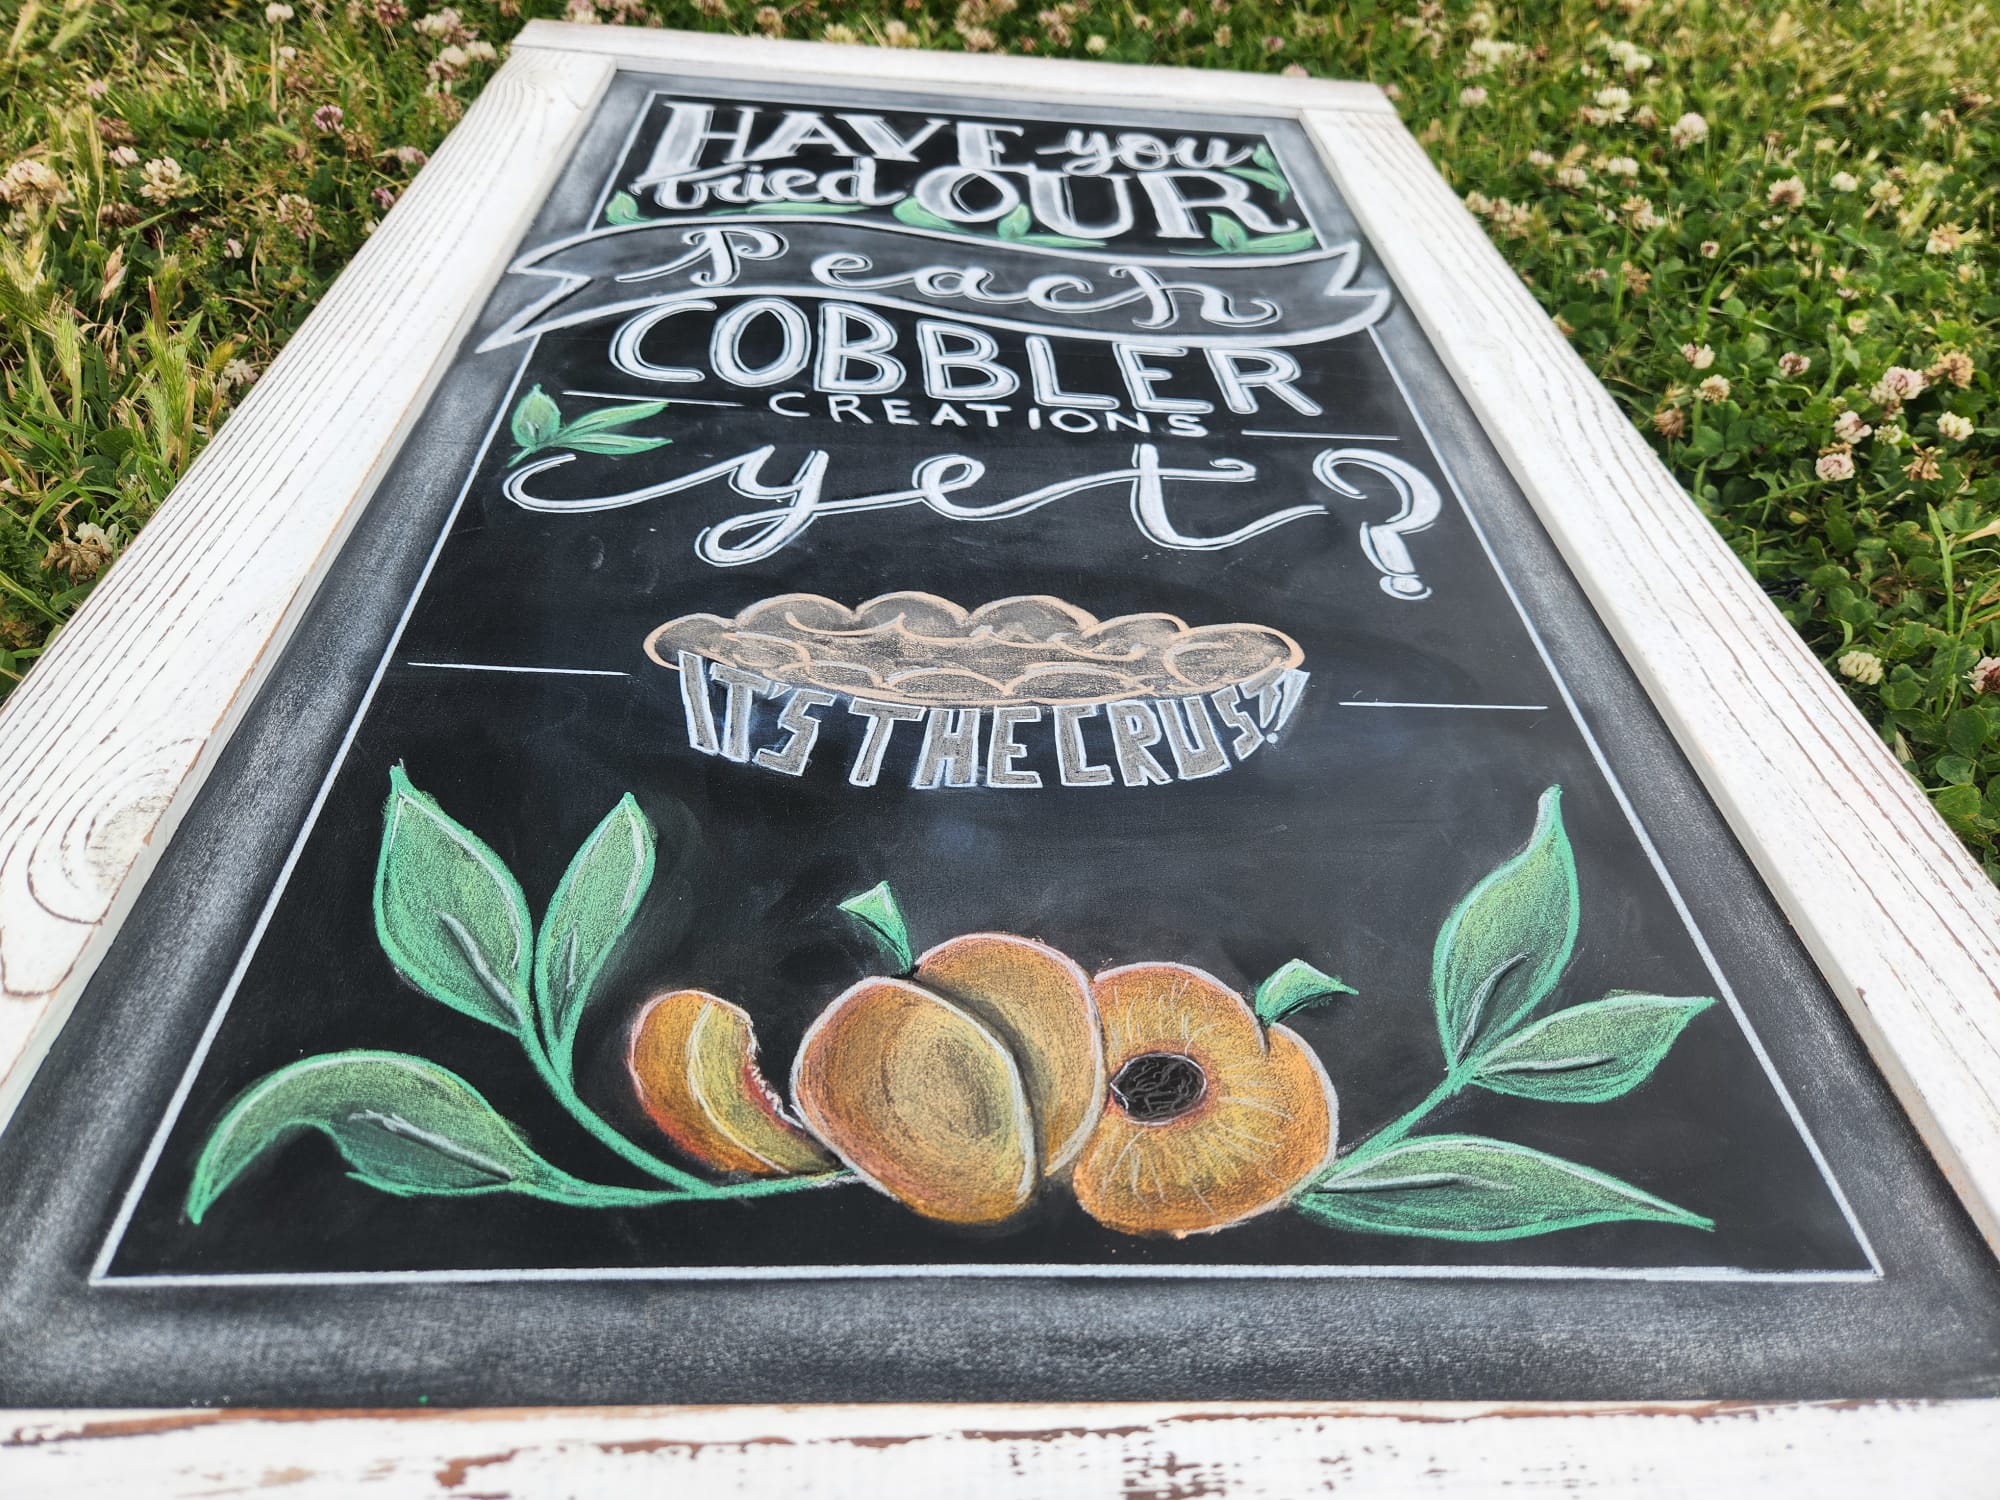 HAVE you
tried OUR
Peach
COBBLER
CREATIONS
yet?
IT'S THE CRUST!